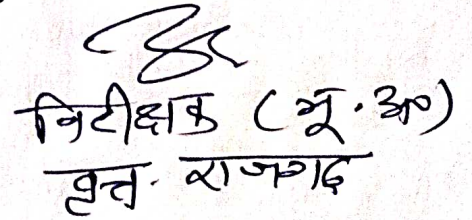 निरीक्षक (भू.अ०)
वृत्त. राजगढ़